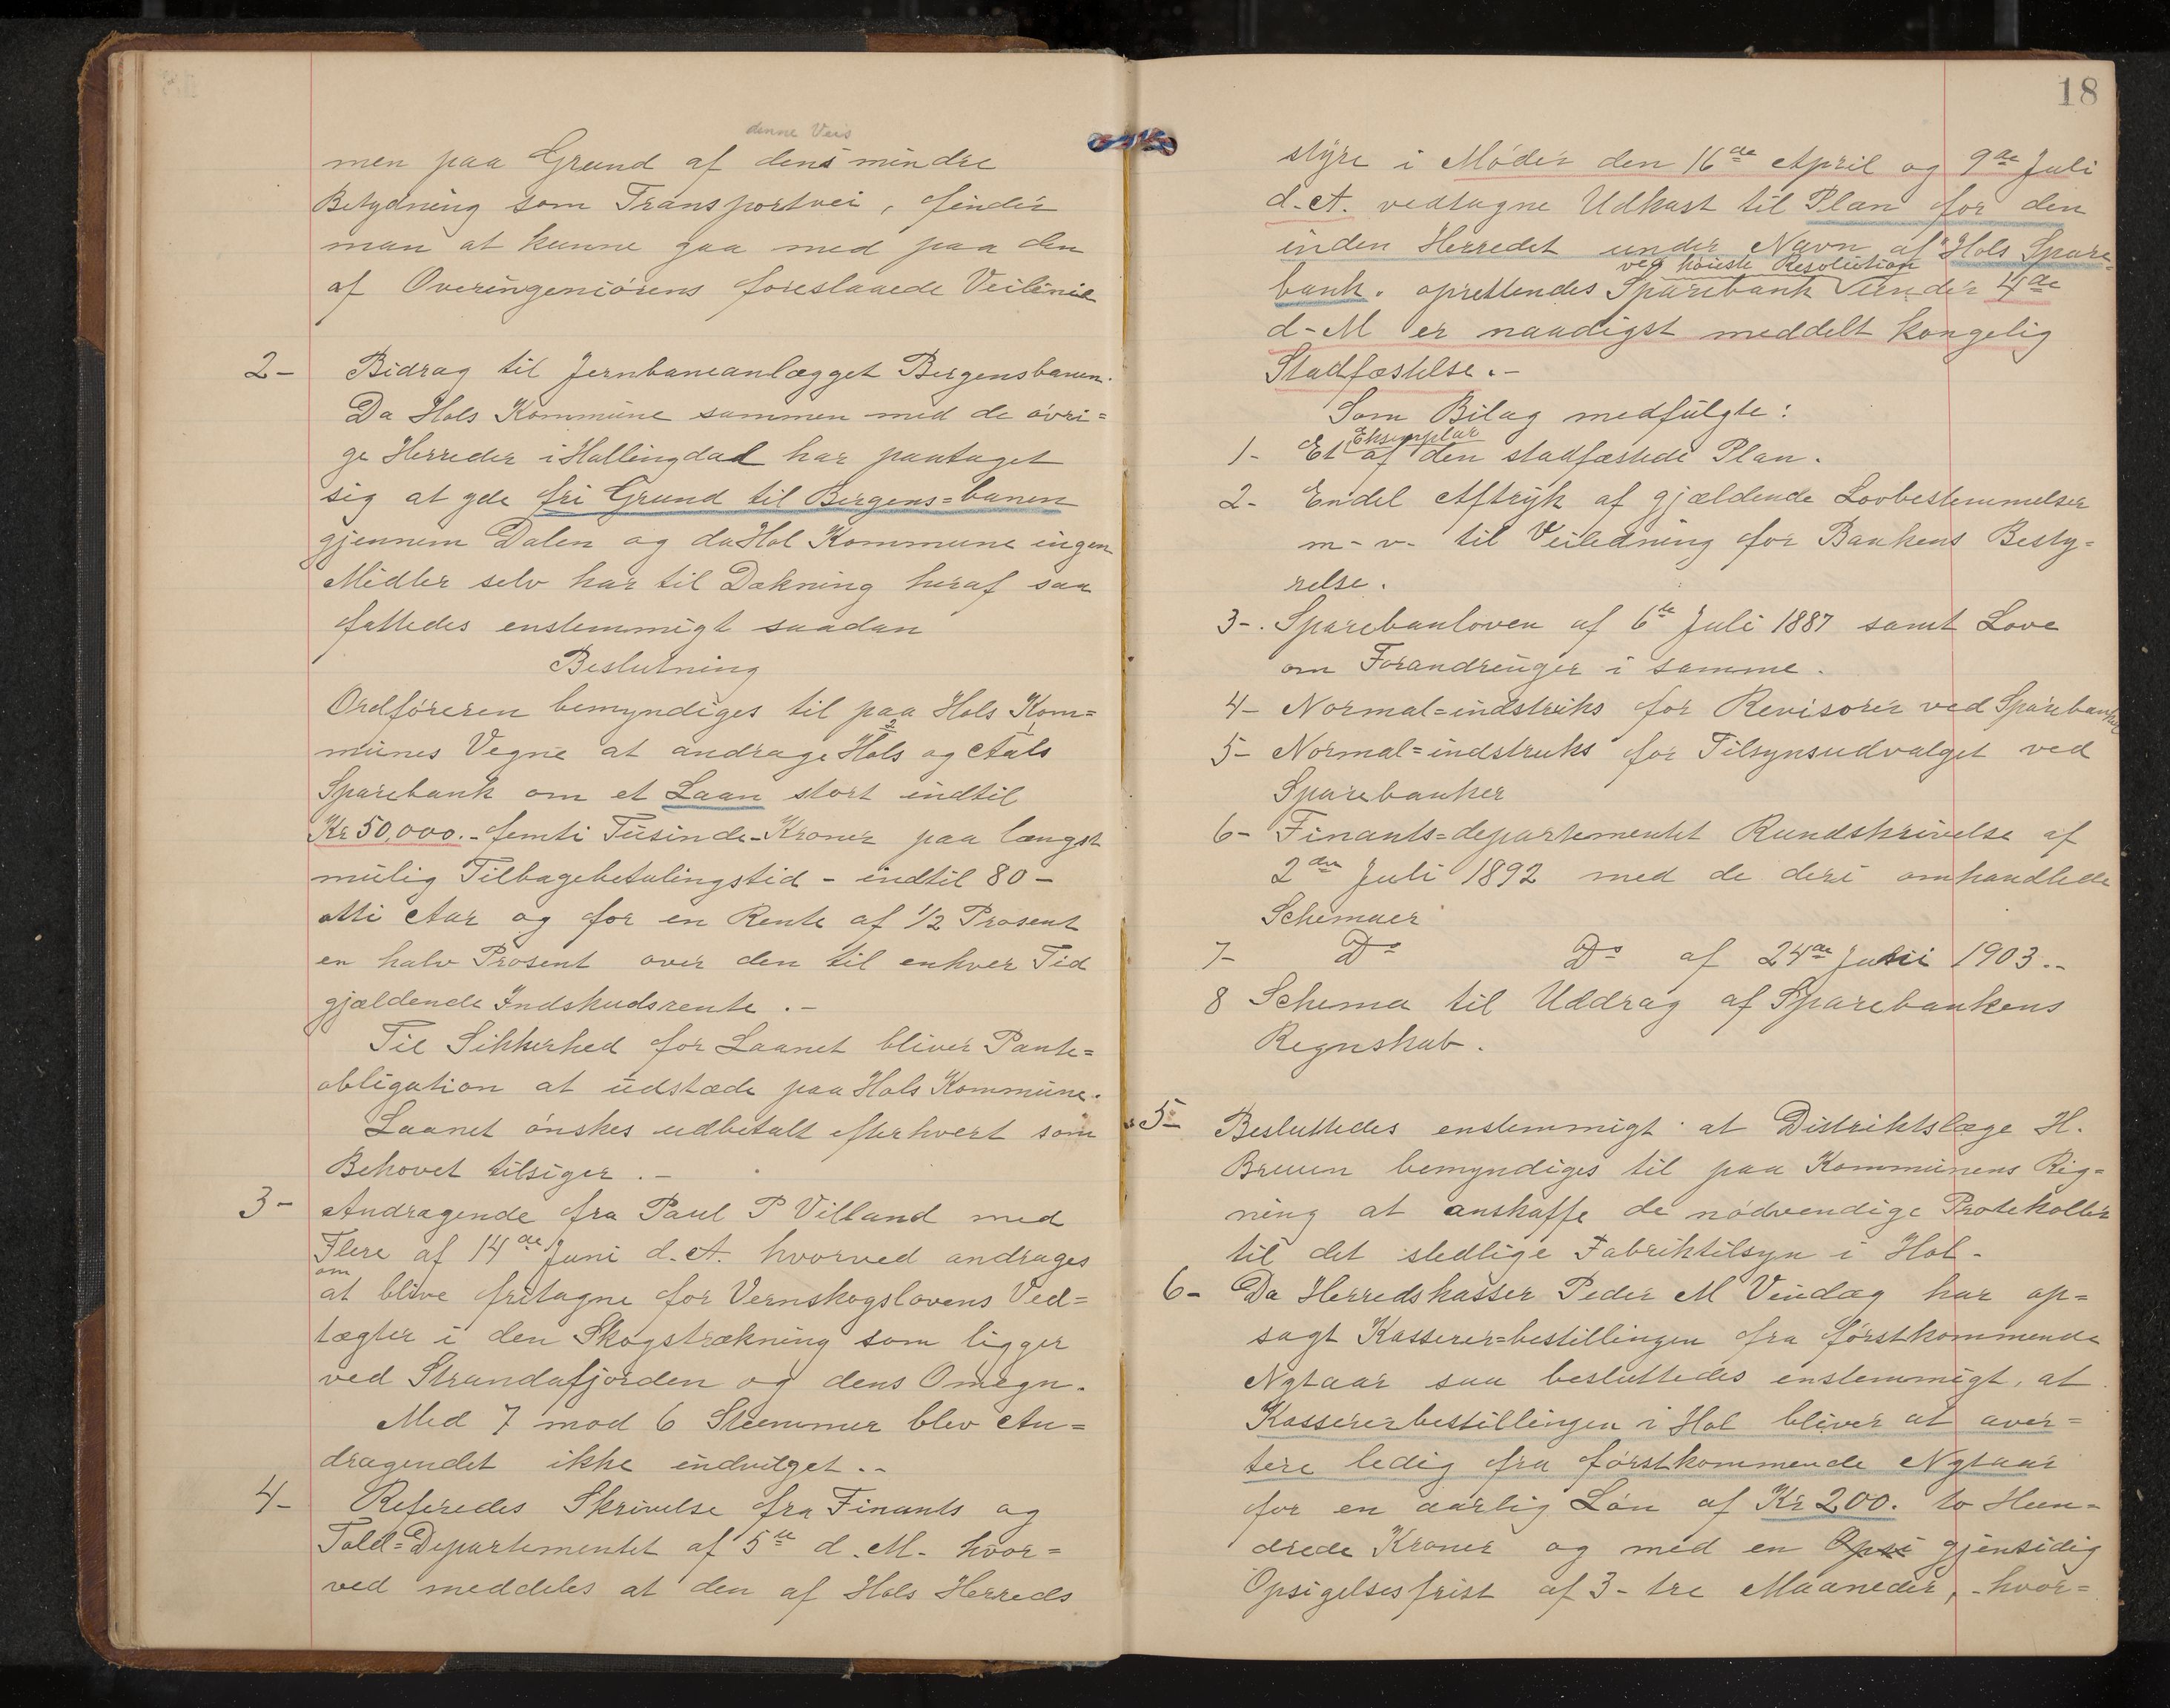 denne Veis
men paa Grund af dens mindre
Betydning som Transportvei, finder
man at kunne gaa med paa den
af Overingeniørens foreslaaede Veilinie
2- Bidrag til Jernbaneanlægget Bergensbanen.
Da Hols Kommune sammen med de øvri=
ge Herreder i Hallingdal har paataget
sig at yde fri Grund til Bergens=banen
gjennem Dalen og da Hol Kommune ingen
Midler selv har til Dækning heraf saa
fattedes enstemmigt saadan
Beslutning
Ordføreren bemyndiges til paa Hols Kom=
munes Vegne at andrage Hols og Aals
Sparebank om et Laan stort indtil
Kr 50,000.- femti Tusinde-Kroner paa længst
mulig Tilbagebetalingstid - indtil 80 -
otti Aar og for en Rente af 1/2 Prosent
en halv Prosent over den til enhver Tid
gjældende Indskudsrente .-
Til Sikkerhed for Laanet bliver Pante=
obligation at udstæde paa Hols Kommune.
Laanet ønskes udbetalt efterhvert som
Behovet tilsiger .-
3- Andragende fra Paul P Villand med
Flere af 14de Juni d.A. hvorved andrages
om
at blive fritagne for Vernskogslovens Ved=
tægter i den Skogstrækning som ligger
ved Strandafjorden og dens Omegn.
Med 7 mod 6 Stemmer blev An=
dragendet ikke indvilget .-
4- Referedes Skrivelse fra Finants og
Told=Departementet af 5te d.M. hvor=
ved meddeles at den af Hols Herreds
18
styre i Møder den 16de April og 9de Juli
d.A. vedtagne Udkast til Plan for den
inden Herredet under Navn af "Hols Spare=
ved høieste Resolution
bank. oprettendes Sparebank under 4de
d-M er naadigst meddelt kongelig
Stadfæstelse .-
Som Bilag medfulgte :
Eksemplar
1- Et af den stadfæstede Plan .
2- Endel Aftryk af gjældende Lovbestemmelser
m-v- til Veiledning for Bankens Besty=
relse .
3-. Sparebanloven af 6te Juli 1887 samt Love
om Forandringer i samme .
4- Normal=indstruks for Revisorer ved Sparebanker
5- Normal=indstruks for Tilsynsudvalget ved
Sparebanker
6- Finants=departementet Rundskrivelse af
2den Juli 1892 med de deri omhandlede
Schemaer
7- Do Do af 24de Juni 1903.-
8 Schema til Uddrag af Sparebankens
Regnskab .
5- Besluttedes enstemmigt at Distriktslæge H.
Bruun bemyndiges til paa Kommunens Rig=
ning at anskaffe de nødvendige Protokoller
til det stedlige Fabriktilsyn i Hol -
6- Da Herredskasser Peder M Vindæg har op=
sagt Kasserer=bestillingen fra førstkommende
Nytaar saa besluttedes enstemmigt, at
Kassererbestillingen i Hol bliver at aver=
tere ledig fra førstkommende Nytaar
for en aarlig Løn af Kr 200. to Hun=
drede Kroner og med en Opsi gjensidig
Opsigelsesfrist af 3- tre Maaneder, - hvor=